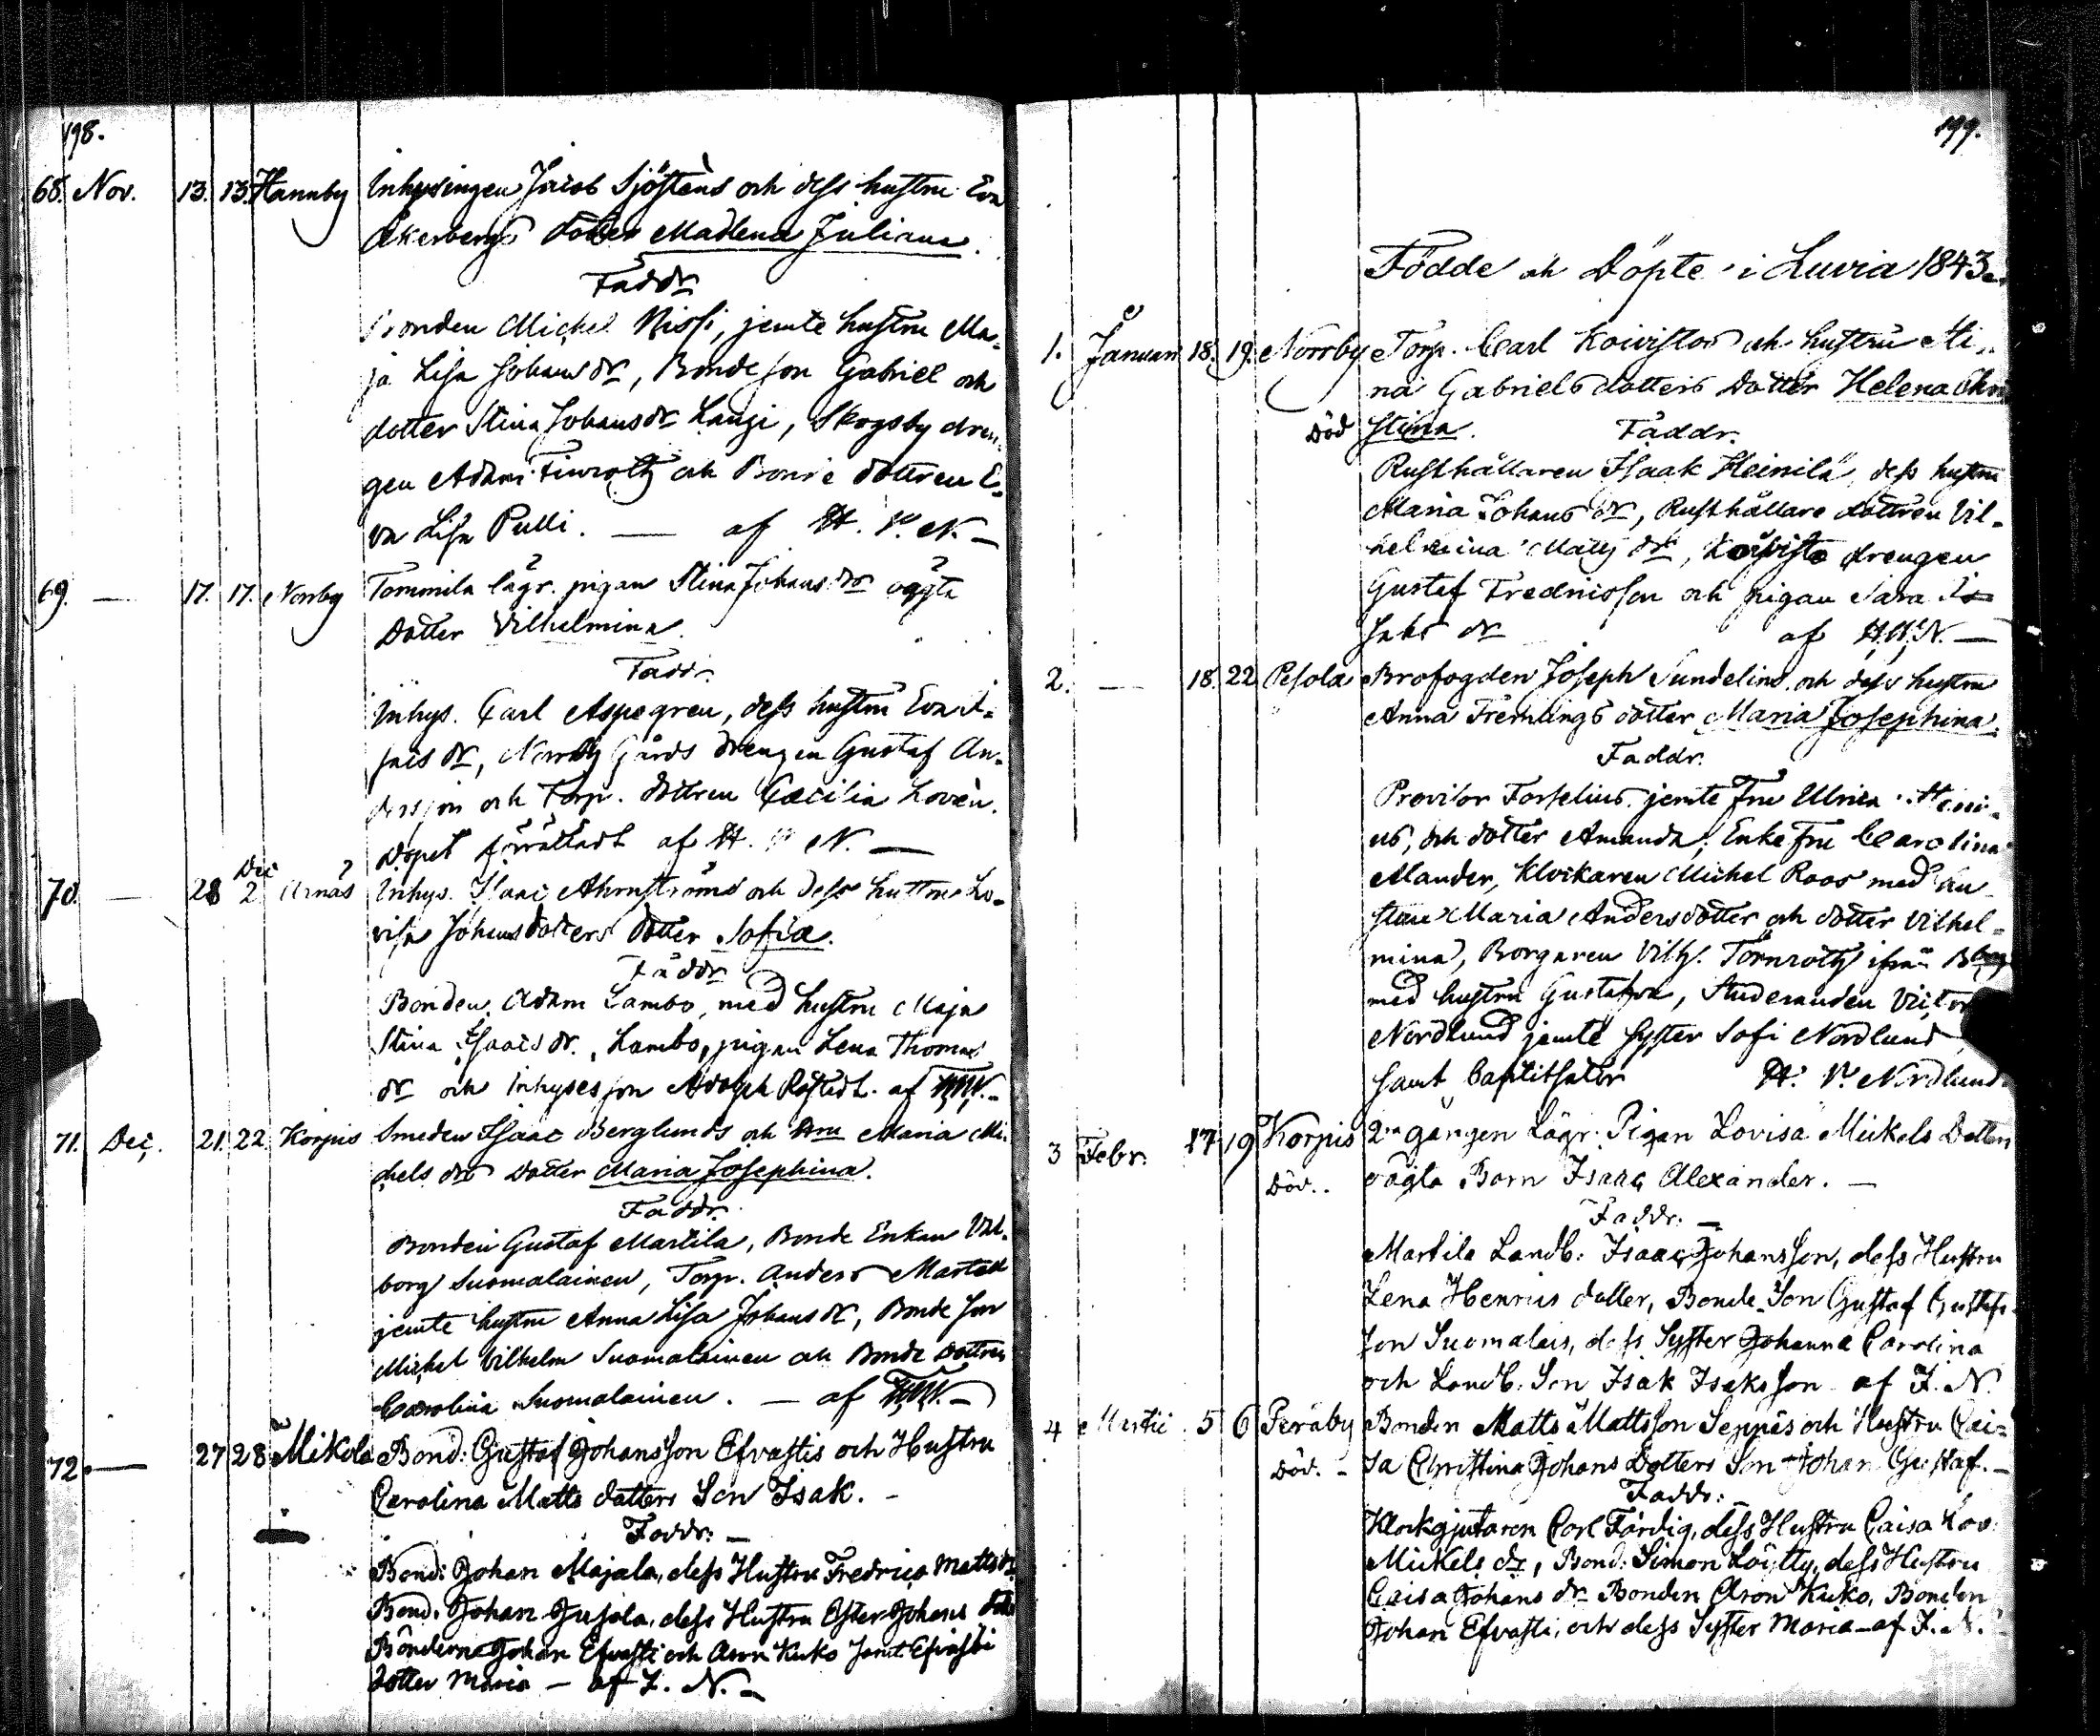 198.
68. Nov. 13. 13. Hannby Inhysingen Jacob Sjösténs och dess hustru Eva
Åkerbergs dotter Madlena Juliana.
Faddr
Bonden Michel Nissi, jemte hustru Ma-
ja Lisa Johans dr, Bonde son Gabriel och
dotter Stina Johans dr Langi, Skogsby dren-
gen Adam Finroth och Bonde dottren E-
va Lisa Pulli. — af H. V. N. —
69. — 17. 17. Norrby Tommila lägr. pigan Stina Johans dr oägta
Dotter Vilhelmina.
Faddr.
Inhys. Carl Aspegren, dess hustru Eva I-
sacs dr, Norrby Gårds drengen Gustaf An-
dersson och Torp. dottren Cecilia Lovén.
Dopet förrättadt af H. V. N. —
70. — 28 Dec 2 Arnäs Inhys. Isaac Ahrnströms och dess hustru Lo-
visa Johansdotters dotter Sofia.
Faddr
Bonden Adam Lambo, med hustru Maja
Stina Isaacs dr., Lambo, pigan Lena Thomas
dr och Inhyses son Adolph Röstedt. af H.V.N. —
71. Dec. 21. 22. Korpis Smeden Isaac Berglunds och Hru Maria Mi-
chels drs dotter Maria Josephina.
Faddr.
Bonden Gustaf Martila, Bonde Enkan Val-
borg Suomalainen, Torp. Anders Marten
jemte hustru Anna Lisa Johans dr, Bonde son
Michel Vilhelm Suomalainen och Bonde dottren
Carolina Suomalainen. — af H.V.N. —
72. — 27 28 Mikola Bond: Gustaf Johansson Efvastis och Hustru
Carolina Matts dotters Son Isak. —
Faddr: —
Bond: Johan Majala, dess Hustru Fredrica Matts dr
Bond. Johan Jusola, dess Hustru Ester Johans dotter
Bönderna Johan Efvasti och Aron Kuko samt Efvasti
dotter Maria — af I. N. —
199.
Födde och Döpte i Luvia 1843.
1. Januari 18. 19. Norrby Torp. Carl Koivistos och hustru Sti-
na Gabrielsdotters dotter Helena Chri
Död stina. Faddr.
Rusthållaren Isaak Heinilä, dess hustru
Maria Johans dr, Rusthållare dottren Vil-
helmina Matts dr, Koivisto drengen
Gustaf Fredricsson och pigan Sara
Jakobs dr af H.V.N. —
2. — 18. 22 Pesola Brofogden Joseph Sundelins och dess hustru
Anna Fremlings dotter Maria Josephina.
Faddr.
Provisor Forselius jemte Fru Ulrica
us, och dotter Amanda, Enke Fru Carolina
Mander, Klockaren Michel Roos med hu-
strun Maria Andersdotter och dotter Vilhel-
mina, Borgaren Vilh. Törnroth ifrån Bborg
med hustru Gustafva, Studeranden Victor
Nordlund jemte syster Sofi Nordlund
samt baptisator H. V. Nordlund
3 Febr. 17 19 Korpis 2dra gången Lägr. Pigan Lovisa Mickels Dotters
Död. oägta Barn Isaac Alexander. —
Faddr. —
Martila Landb: Isaac Johansson, dess Hustru
Lena Henrics dotter, Bonde Son Gustaf Gustafs-
son Suomalais, dess Syster Johanna Carolina
och Landb. Son Isak Isaksson af I. N.
4 Martii 5 6 Peräby Bonden Matts Mattsson Seppäs och Hustru Cai-
Död. — sa Christina Johans Dotters Son Johan Gustaf. —
Faddr:
Klockgjutaren Carl Färdig, dess Hustru Caisa Lov:
Mickels dr, Bond: Simon Löytty, dess Hustru
Caisa Johans dr Bonden Aron Kuko, Bonden
Johan Efvasti, och dess Syster Maria — af I. N.